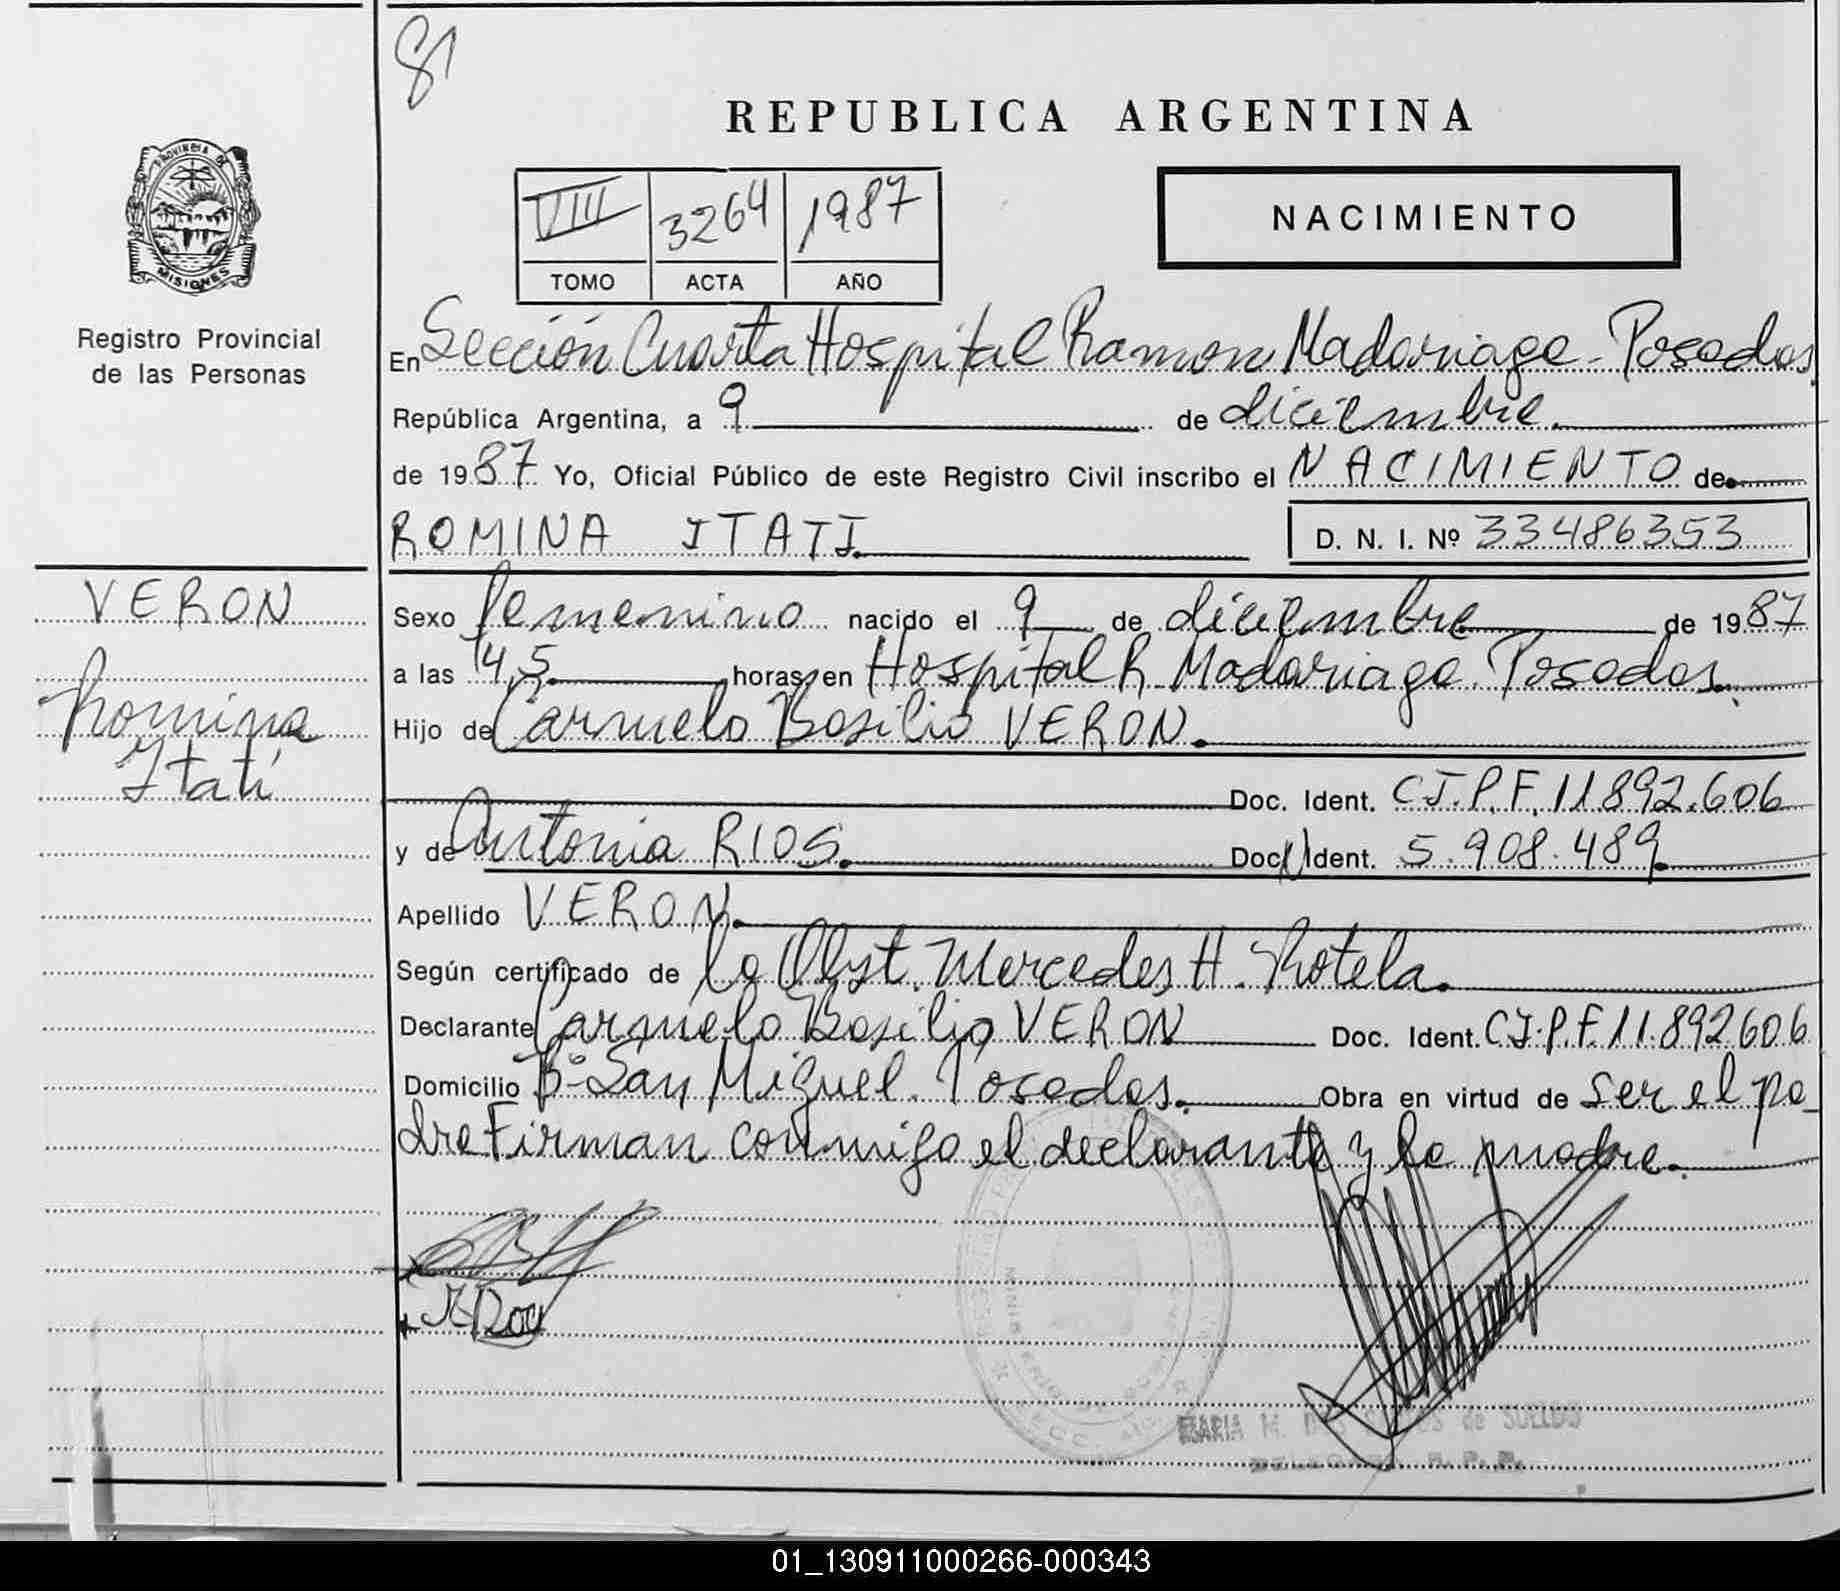 81
REPUBLICA ARGENTINA
PROVINCIA DE
MISIONES
VIII 3264 1987
TOMO ACTA AÑO
NACIMIENTO
Registro Provincial
de las Personas
En Sección Cuarta Hospital Ramon Madariaga - Posadas
República Argentina, a 9 de diciembre
de 1987 Yo, Oficial Público de este Registro Civil inscribo el NACIMIENTO de
ROMINA ITATI D. N. I. Nº 33486353
VERON
Romina
Itatí
Sexo femenino nacido el 9 de diciembre de 1987
a las 14,5 horas en Hospital R. Madariaga. Posadas.
Hijo de Carmelo Basilio VERON.
Doc. Ident. C.I.P.F. 11892.606
y de Antonia RIOS. Doc. Ident. 5.908.489.
Apellido VERON.
Según certificado de la Obst. Mercedes H. Rotela.
Declarante Carmelo Basilio VERON Doc. Ident. C.I.P.F. 11.892606
Domicilio Bº San Miguel. Posadas. Obra en virtud de ser el pa
dre Firman conmigo el declarante y la madre.
MARIA M. DOS de SUELDO
DELEGADA R. P. P.
01_130911000266-000343